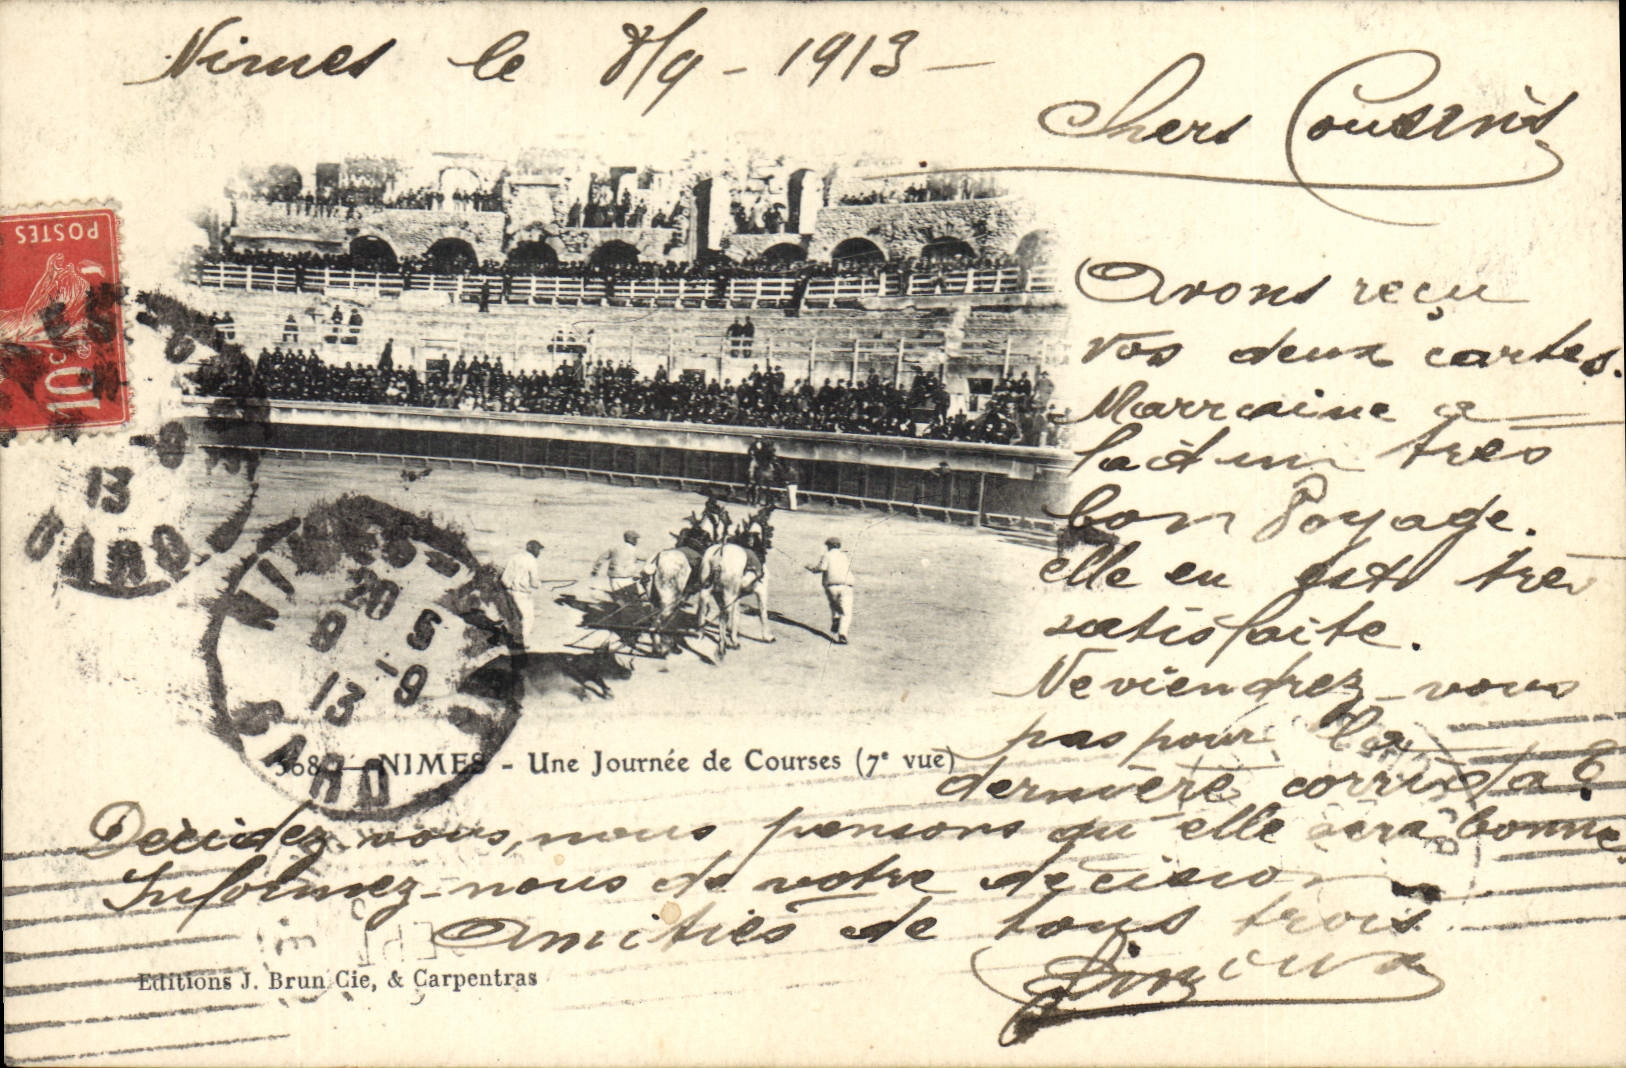 Nimes le 8/9 - 1913 -
Chers Cousins
POSTES
10c
Avons reçu
vos deux cartes.
Marraine a
fait un très
bon Voyage.
elle en est très
satisfaite.
Ne viendrez-vous
pas pour la
dernière corrida?
Décidez-vous, nous pensons qu'elle sera bonne.
Informez-nous de votre décision
Amitiés de tous trois
13
GARD
NIMES-
20 5
9 -9
13
GARD
368 — NIMES - Une Journée de Courses (7e vue)
Editions J. Brun Cie, & Carpentras